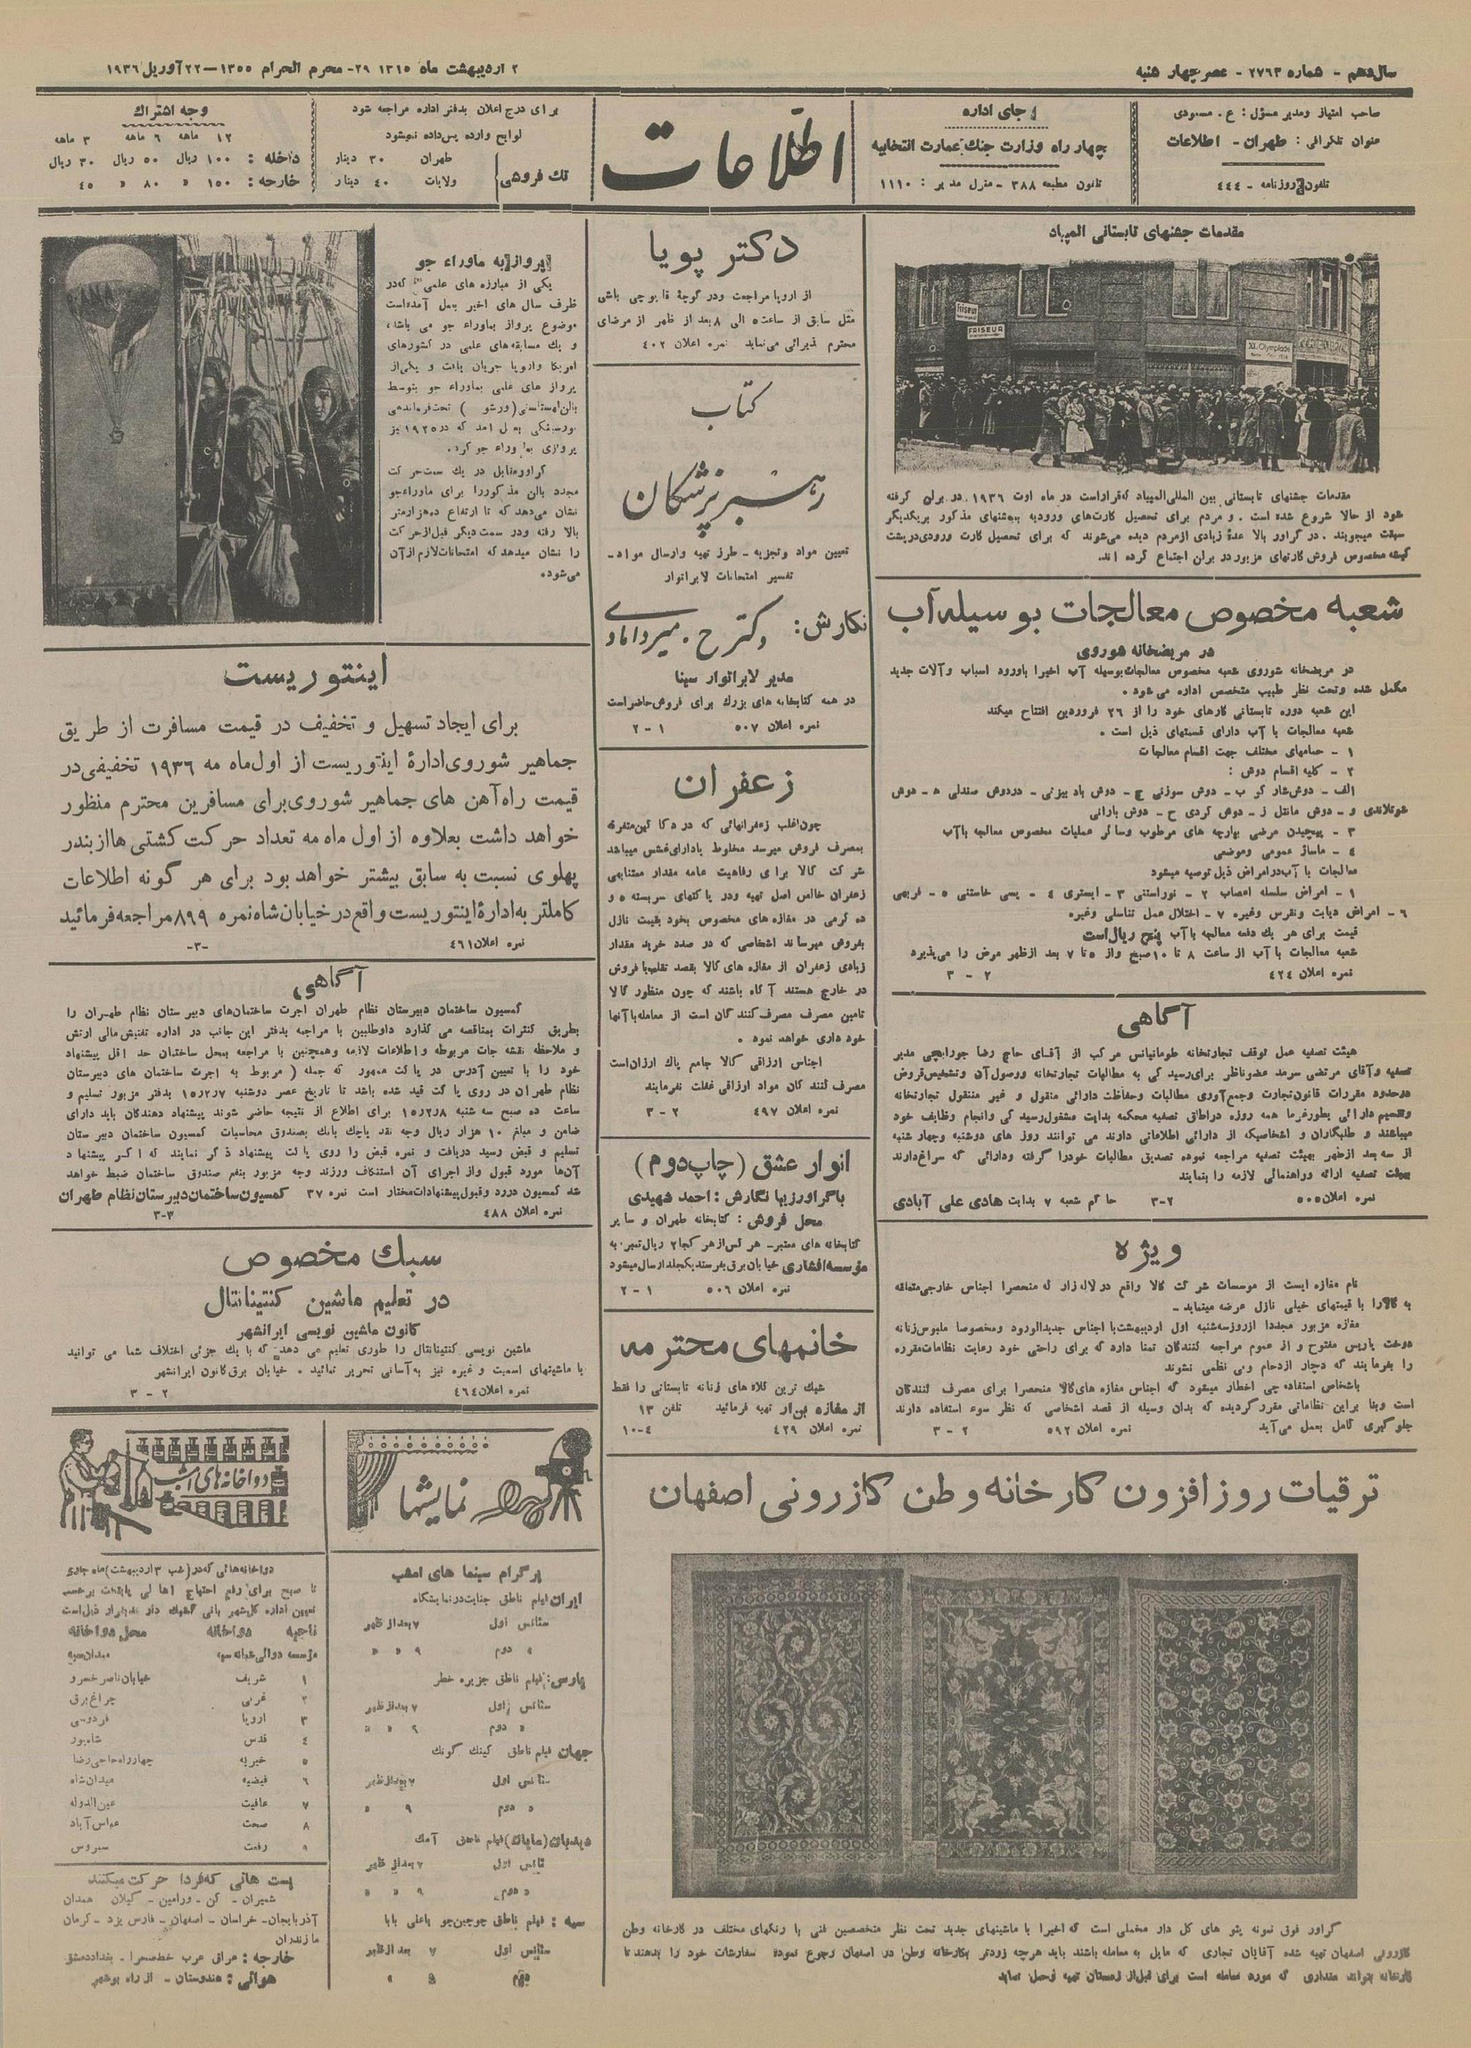 سال دهم - شماره ۲۷۶۳ - عصر چهار شنبه
۲ اردیبهشت ماه ۱۳۱۵ ۲۹- محرم الحرام ۱۳۵۵—۲۲ آوریل ۱۹۳۶
صاحب امتیاز ومدیر مسؤل : ع . مسعودی
عنوان تلگرافی : طهران - اطلاعات
تلفون روزنامه - ۴۴۴
جای اداره
چهار راه وزارت جنك عمارت انتخابیه
تلفون مطبعه ۳۸۸ - منزل مدیر : ۱۱۱۰
اطلاعات
برای درج اعلان بدفتر اداره مراجعه شود
لوایح وارده پس داده نمیشود
تك فروشی
طهران ۳۰ دینار
ولایات ۴۰ دینار
وجه اشتراك
۱۲ ماهه ۶ ماهه ۳ ماهه
داخله : ۱۰۰ ریال ۵۰ ریال ۳۰ ریال
خارجه : ۱۵۰ « ۸۰ « ۴۵
مقدمات جشنهای تابستانی المپیاد
friseur
FRISEUR
XI. Olympiade
مقدمات جشنهای تابستانی بین المللی المپیاد که قراراست در ماه اوت ۱۹۳۶ در برلن گرفته
شود از حالا شروع شده است . و مردم برای تحصیل کارت‌های ورودیه بجشنهای مذکور بریکدیگر
سبقت میجویند . در گراور بالا عدهٔ زیادی از مردم دیده می‌شوند که برای تحصیل کارت ورودی در پشت
گیشه مخصوص فروش کارتهای مزبور در برلن اجتماع کرده اند.
شعبه مخصوص معالجات بوسیله آب
در مریضخانه شوروی
در مریضخانه شوروی شعبه مخصوص معالجات بوسیله آب اخیرا باورود اسباب وآلات جدید
مکمل شده وتحت نظر طبیب متخصص اداره می شود .
این شعبه دوره تابستانی کارهای خود را از ۲۶ فروردین افتتاح میکند
شعبه معالجات با آب دارای قسمتهای ذیل است .
۱ - حمامهای مختلف جهت اقسام معالجات
۲ - کلیه اقسام دوش :
الف - دوش شار کو ب - دوش سوزنی ج - دوش باد بیزنی - د دوش صندلی ه - دوش
شوتلاندی و - دوش مانتل ز - دوش گردی ح - دوش بارانی
۳ - پیچیدن مرضی بپارچه های مرطوب وسائر عملیات مخصوص معالجه باآب
۴ - ماساژ عمومی وموضعی
معالجات با آب در امراض ذیل توصیه میشود
۱ - امراض سلسله اعصاب ۲ - نوراستنی ۳ - ایستری ۴ - پسی خاستنی ۵ - فربهی
۶ - امراض دیابت ونقرس وغیره ۷ - اختلال عمل تناسلی وغیره
قیمت برای هر یك دفعه معالجه باآب پنج ریال است
شعبه معالجات با آب از ساعت ۸ تا ۱۰صبح واز ۵ تا ۷ بعد از ظهر مرض را می‌پذیرد
نمره اعلان ۴۲۴ ۲ - ۳
آگاهی
هیئت تصفیه عمل توقف تجارتخانه طومانیانس مرکب از آقای حاج رضا جورابچی مدیر
تصفیه وآقای مرتضی سرمد عضوناظر برای رسید گی به مطالبات تجارتخانه ووصول آن وتشخیص قروض
درحدود مقررات قانون تجارت وجمع آوری مطالبات وحفاظت دارائی منقول و غیر منقول تجارتخانه
وتقسیم دارائی بطور غرما همه روزه دراطاق تصفیه محکمه بدایت مشغول رسید گی وانجام وظایف خود
میباشند و طلبگاران و اشخاصیکه از دارائی اطلاعاتی دارند می توانند روز های دوشنبه وچهار شنبه
از سه بعد از ظهر بهیئت تصفیه مراجعه نموده تصدیق مطالبات خودرا گرفته ودارائی که سراغ دارند
بهیئت تصفیه ارائه وراهنمائی لازمه را بنمایند
نمره اعلان ۵۰۵ ۲-۳ حاکم شعبه ۷ بدایت هادی علی آبادی
ویژه
نام مغازه ایست از موسسات شرکت کالا واقع در لاله زار که منحصرا اجناس خارجی متعلقه
به کالارا با قیمتهای خیلی نازل عرضه مینماید -
مغازه مزبور مجددا از روز سه‌شنبه اول اردیبهشت با اجناس جدیدالورود ومخصوصا ملبوس زنانه
دوخت پاریس مفتوح و از عموم مراجعه کنندگان تمنا دارد که برای راحتی خود رعایت نظامات مقرره
را بفرمایند که دچار ازدحام وبی نظمی نشوند
باشخاص استفاده چی اخطار میشود که اجناس مغازه های کالا منحصرا برای مصرف کنندگان
است وبنا براین نظاماتی مقرر گردیده که بدان وسیله از قصد اشخاصی که نظر سوء استفاده دارند
جلو گیری کامل بعمل می‌آید نمره اعلان ۵۹۲ ۲ - ۳
دکتر پویا
از اروپا مراجعت ودر کوچهٔ قاپوچی باشی
مثل سابق از ساعت ۵ الی ۸ بعد از ظهر از مرضای
محترم پذیرائی می‌نماید نمره اعلان ۴۰۲
کتاب
رهبر پزشکان
تعیین مواد وتجزیه - طرز تهیه وارسال مواد -
تفسیر امتحانات لابراتوار
نگارش : دکتر ح . میردامادی
مدیر لابراتوار سینا
در همه کتابخانه های بزرك برای فروش حاضراست
نمره اعلان ۵۰۷ ۱ - ۲
زعفران
چون اغلب زعفرانهائی که در دکاکین متفرقه
بمصرف فروش میرسد مخلوط یادارای غش میباشد
شرکت کالا برای رفاهیت عامه مقدار معتنابهی
زعفران خالص اصل تهیه ودر پاکتهای سربسته ۵ و
ده گرمی در مغازه های مخصوص بخود بقیمت نازل
بفروش میرساند اشخاصی که در صدد خرید مقدار
زیادی زعفران از مغازه های کالا بقصد تقلب یا فروش
در خارج هستند آگاه باشند که چون منظور کالا
تامین مصرف مصرف کنندگان است از معامله باآنها
خود داری خواهد نمود .
اجناس ارزاقی کالا جامع پاك ارزان است
مصرف کنند گان مواد ارزاقی غفلت نفرمایند
نمره اعلان ۴۹۷ ۲ - ۳
انوار عشق (چاپ دوم)
باگراور زیبا نگارش : احمد شهیدی
محل فروش : کتابخانه طهران و سایر
کتابخانه های معتبر - هر کس از هر کجا ۲ ریال تمبر به
مؤسسه افشاری خیابان برق بفرستد یکجلد ارسال میشود
نمره اعلان ۵۰۶ ۱ - ۲
خانمهای محترمه
شیك ترین کلاه های زنانه تابستانی را فقط
از مغازه تهیه فرمائید تلفن ۱۳
نمره اعلان ۴۲۹ ۴-۱۰
پرواز به ماوراء جو
یکی از مبارزه های علمی که در
ظرف سال های اخیر بعمل آمده است
موضوع پرواز بماوراء جو می باشد،
و یك مسابقه‌های علمی در کشورهای
امریکا واروپا جریان یافت و یکی از
پرواز های علمی بماوراء جو بتوسط
بالن لهستانی (ورشو ) تحت فرماندهی
بعمل آمد که در ۱۹۲۵ نیز
پروازی بماوراء جو کرد.
گراور مقابل در یك سمت حرکت
مجدد بالن مذکوررا برای ماوراءجو
نشان می‌دهد که تا ارتفاع ده‌هزار متر
بالا رفته ودر سمت دیگر قبل از حرکت
را نشان میدهد که امتحانات لازم از آن
می‌شود.
اینتوریست
برای ایجاد تسهیل و تخفیف در قیمت مسافرت از طریق
جماهیر شوروی ادارهٔ اینتوریست از اول ماه مه ۱۹۳۶ تخفیفی در
قیمت راه آهن های جماهیر شوروی برای مسافرین محترم منظور
خواهد داشت بعلاوه از اول ماه مه تعداد حرکت کشتی ها از بندر
پهلوی نسبت به سابق بیشتر خواهد بود برای هر گونه اطلاعات
کاملتر به ادارهٔ اینتوریست واقع در خیابان شاه نمره ۸۹۹ مراجعه فرمائید
نمره اعلان ۴۶۱ -۳-
آگاهی
کمسیون ساختمان دبیرستان نظام طهران اجرت ساختمان‌های دبیرستان نظام طهران را
بطریق کنترات بمناقصه می گذارد داوطلبین با مراجعه بدفتر این جانب در اداره تفتیش مالی ارتش
و ملاحظه نقشه جات مربوطه واطلاعات لازمه وهمچنین با مراجعه بمحل ساختمان حد اقل پیشنهاد
خود را با تعیین آدرس در پاکت ممهور که جمله ( مربوط به اجرت ساختمان های دبیرستان
نظام طهران در روی پاکت قید شده باشد تا تاریخ عصر دوشنبه ۱۵/۲/۷ بدفتر مزبور تسلیم و
ساعت ده صبح سه شنبه ۱۵/۲/۸ برای اطلاع از نتیجه حاضر شوند پیشنهاد دهندگان باید دارای
ضامن و مبلغ ۱۰ هزار ریال وجه نقد یا چك بانك بصندوق محاسبات کمسیون ساختمان دبیرستان
تسلیم و قبض رسید دریافت و نمره قبض را روی پاکت پیشنهاد ذکر نمایند که اگر پیشنهاد
آن‌ها مورد قبول واز اجرای آن استنکاف ورزند وجه مزبور بنفع صندوق ساختمان ضبط خواهد
شد کمسیون دررد وقبول پیشنهادات مختار است نمره ۳۷ کمسیون ساختمان دبیرستان نظام طهران
نمره اعلان ۴۸۸ ۳-۳
سبك مخصوص
در تعلیم ماشین کنتینانتال
کانون ماشین نویسی ایرانشهر
ماشین نویسی کنتینانتال را طوری تعلیم می دهد که با یك جزئی اختلاف شما می توانید
با ماشینهای اسمیت و غیره نیز به آسانی تحریر نمائید . خیابان برق کانون ایرانشهر
نمره اعلان ۴۶۴ ۲ - ۳
نمایشها
پرگرام سینما های امشب
ایران فیلم ناطق جنایت در نمایشگاه
سئانس اول ۷ بعد از ظهر
« دوم ۹ « «
پارس : فیلم ناطق جزیره خطر
سئانس اول ۷ بعد از ظهر
« دوم ۹ « «
جهان فیلم ناطق کینك کونك
سئانس اول ۷ بعد از ظهر
« دوم ۹ «
فیلم ناطق
سئانس اول ۷ بعد از ظهر
« دوم ۹ « «
سپه : فیلم ناطق چوچین‌چو یا علی بابا
سئانس اول ۷ بعد از ظهر
دوم ۹ «
دواخانه های امشب
دواخانه‌هائی که در (شب ۳ اردیبهشت) ماه جاری
تا صبح برای رفع احتیاج اهالی پایتخت برحسب
تعیین اداره کل شهربانی کشیك دار بقرار ذیل است
ناحیه دواخانه محل دواخانه
مؤسسه دوائی سپه میدان سپه
۱ شریف خیابان ناصر خسرو
۲ غربی چراغ برق
۳ اروپا فردوسی
۴ قدس شاهپور
۵ خیریه چهار راه حاجی رضا
۶ فیضیه میدان شاه
۷ عافیت عین الدوله
۸ صحت عباس آباد
۹ رفعت سیروس
پست هائی که فردا حرکت میکنند
شمیران - کن - ورامین - گیلان همدان
آذربایجان - خراسان - اصفهان - فارس یزد - کرمان
مازندران
خارجه : عراق عرب - بغداد دمشق
هوائی : هندوستان - از راه بوشهر
ترقیات روز افزون کارخانه وطن کازرونی اصفهان
گراور فوق نمونه پتو های گل دار مخملی است که اخیرا با ماشینهای جدید تحت نظر متخصصین فنی با رنگهای مختلف در کارخانه وطن
کازرونی اصفهان تهیه شده آقایان تجاری که مایل به معامله باشند باید هرچه زودتر بکارخانه وطن در اصفهان رجوع نموده سفارشات خود را بدهند تا
کارخانه بتواند مقداری که مورد معامله است برای قبل از زمستان تهیه وحمل نماید